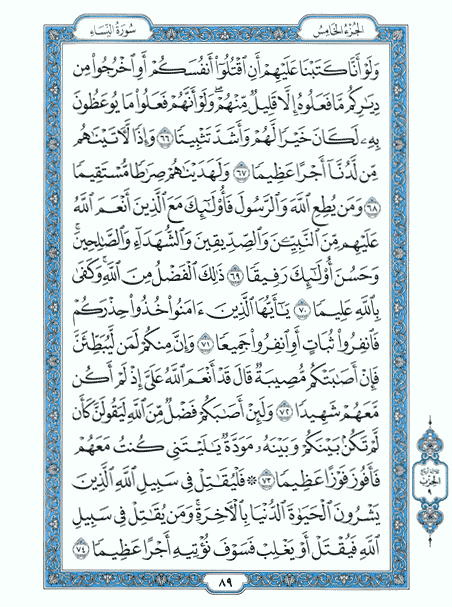 الجزء الخامس
سورة النساء
وَلَوْ أَنَّا كَتَبْنَا عَلَيْهِمْ أَنِ ٱقْتُلُوٓا۟ أَنفُسَكُمْ أَوِ ٱخْرُجُوا۟ مِن
دِيَـٰرِكُم مَّا فَعَلُوهُ إِلَّا قَلِيلٌ مِّنْهُمْ ۖ وَلَوْ أَنَّهُمْ فَعَلُوا۟ مَا يُوعَظُونَ
بِهِۦ لَكَانَ خَيْرًا لَّهُمْ وَأَشَدَّ تَثْبِيتًا ٦٦ وَإِذًا لَّـَٔاتَيْنَـٰهُم
مِّن لَّدُنَّآ أَجْرًا عَظِيمًا ٦٧ وَلَهَدَيْنَـٰهُمْ صِرَٰطًا مُّسْتَقِيمًا
٦٨ وَمَن يُطِعِ ٱللَّهَ وَٱلرَّسُولَ فَأُو۟لَـٰٓئِكَ مَعَ ٱلَّذِينَ أَنْعَمَ ٱللَّهُ
عَلَيْهِم مِّنَ ٱلنَّبِيِّـۧنَ وَٱلصِّدِّيقِينَ وَٱلشُّهَدَآءِ وَٱلصَّـٰلِحِينَ ۚ
وَحَسُنَ أُو۟لَـٰٓئِكَ رَفِيقًا ٦٩ ذَٰلِكَ ٱلْفَضْلُ مِنَ ٱللَّهِ ۚ وَكَفَىٰ
بِٱللَّهِ عَلِيمًا ٧٠ يَـٰٓأَيُّهَا ٱلَّذِينَ ءَامَنُوا۟ خُذُوا۟ حِذْرَكُمْ
فَٱنفِرُوا۟ ثُبَاتٍ أَوِ ٱنفِرُوا۟ جَمِيعًا ٧١ وَإِنَّ مِنكُمْ لَمَن لَّيُبَطِّئَنَّ
فَإِنْ أَصَـٰبَتْكُم مُّصِيبَةٌ قَالَ قَدْ أَنْعَمَ ٱللَّهُ عَلَىَّ إِذْ لَمْ أَكُن
مَّعَهُمْ شَهِيدًا ٧٢ وَلَئِنْ أَصَـٰبَكُمْ فَضْلٌ مِّنَ ٱللَّهِ لَيَقُولَنَّ كَأَن
لَّمْ تَكُنۢ بَيْنَكُمْ وَبَيْنَهُۥ مَوَدَّةٌ يَـٰلَيْتَنِى كُنتُ مَعَهُمْ
فَأَفُوزَ فَوْزًا عَظِيمًا ٧٣ ۞ فَلْيُقَـٰتِلْ فِى سَبِيلِ ٱللَّهِ ٱلَّذِينَ
يَشْرُونَ ٱلْحَيَوٰةَ ٱلدُّنْيَا بِٱلْـَٔاخِرَةِ ۚ وَمَن يُقَـٰتِلْ فِى سَبِيلِ
ٱللَّهِ فَيُقْتَلْ أَوْ يَغْلِبْ فَسَوْفَ نُؤْتِيهِ أَجْرًا عَظِيمًا ٧٤
الحزب
٩
٨٩